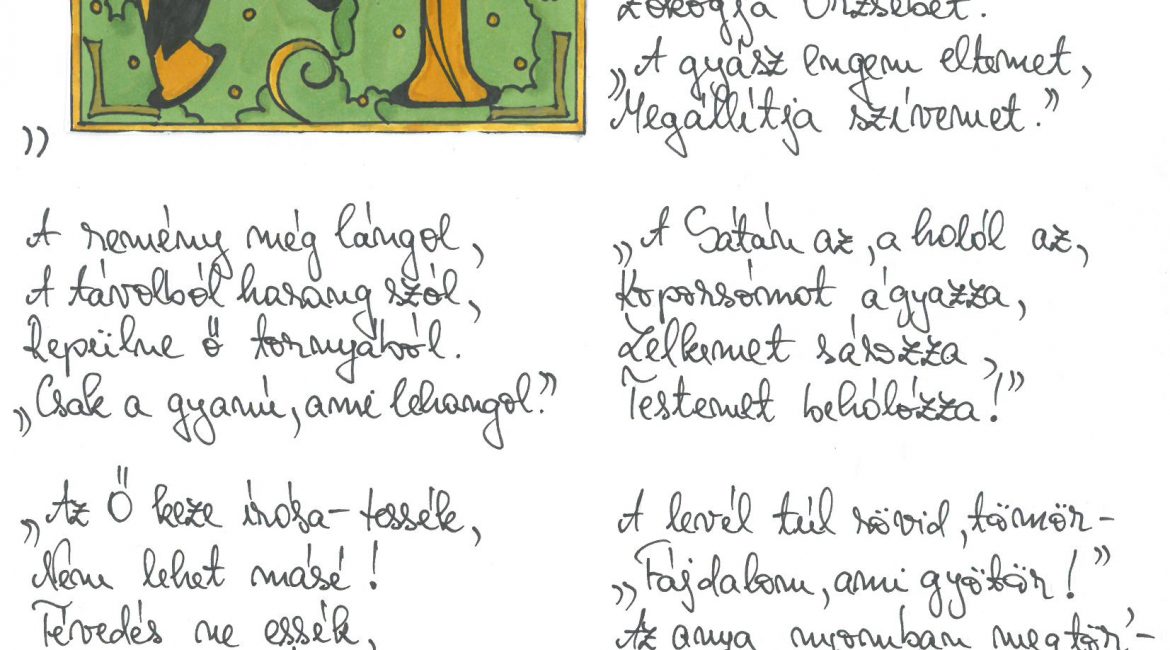 "
A remény még lángol,
A távolból harang szól,
Repülne Ő tornyából.
„Csak a gyanú, ami lehangol."
„Az Ő keze írása - tessék,
Nem lehet másé!
Tévedés ne essék,
Zokogja Örzsébet.
„A gyász engem eltemet,
Megállítja szívemet."
„A Sátán az, a halál az,
Koporsómat ágyazza,
Lelkemet sározza,
Testemet behálózza!"
A levél túl rövid, tömör -
„Fájdalom, ami gyötör!"
Az anya nyomban megtör'-